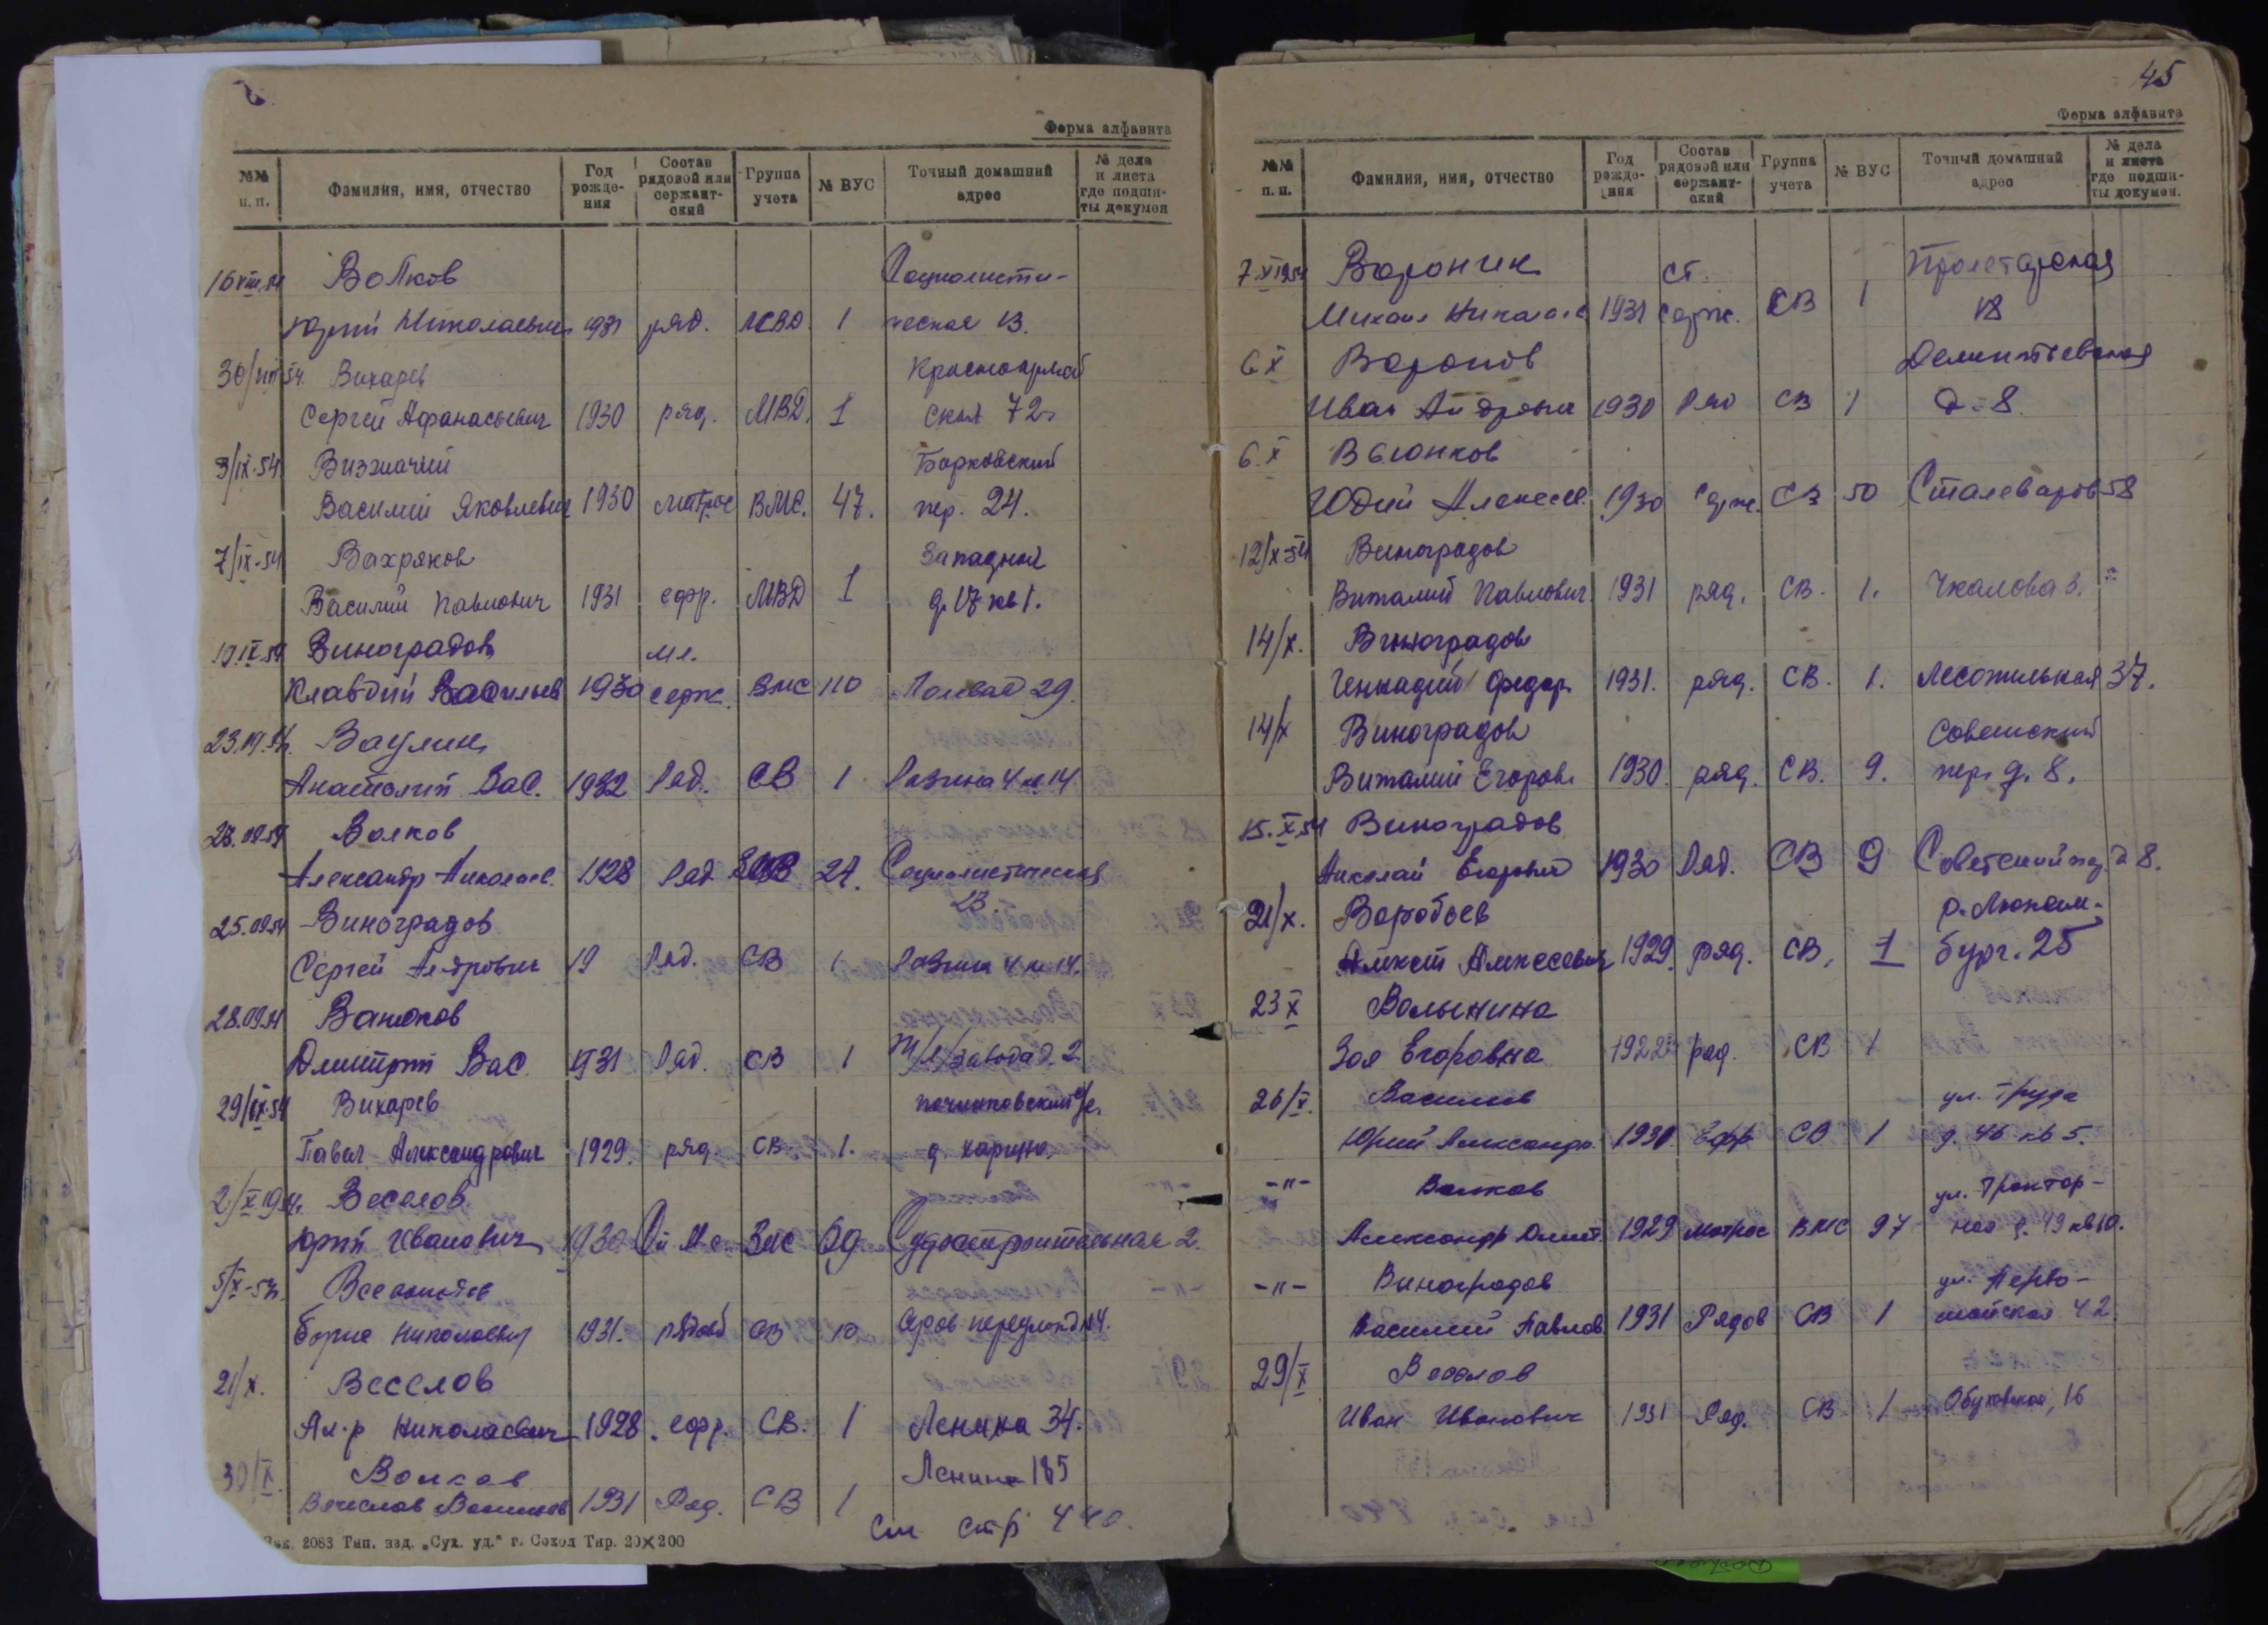 Форма алфавита
№№ п. п. Фамилия, имя, отчество Год рождения Состав рядовой или сержантский Группа учета № ВУС Точный домашний адрес № дела и листа где подшиты докумен
16 VIII 54 Волков Социалисти-
Юрий Николаевич 1931 ряд. 1 ческая 13.
30/VIII 54. Вихарев Красноармей
Сергей Афанасьевич 1930 ряд. МВД. 1 ская 72
3/IX-54. Визначий Борковский
Василий Яковлевич 1930 матрос ВМС. 47. пер. 24.
7/IX-54 Вахряков Западная
Василий Павлович 1931 ефр. МВД 1 д. 17 кв 1.
Виноградов мл.
Клавдий Васильев 1930 серж. ВМС 110 Полевая 29.
Ваулин
Анатолий Вас. 1932 Ряд. СВ 1 Разина 4 14
Волков
Александр Николаев. 1928 Ряд Социалистическая
13
25.09.54 Виноградов
Сергей 19 Ряд. СВ 1 Разина 4 14.
28.09.54 Ванюков
Дмитрий Вас. 1931 Ряд. СВ 1 завода д. 2
29/IX-54 Вихарев с/с.
Павел Александрович 1929. ряд. СВ. 1. д. Харино.
2/X 1954. Веселов
Юрий Иванович 1930 ВМС 69 Судостроительная 2.
5/X-54.
Борис Николаевич 1931. рядовой СВ 10
21/X. Веселов
Ал-р Николаевич 1928. ефр. СВ. 1 Ленина 34.
30/X. Волков Ленина 185
Вячеслав Васильев 1931 Ряд. СВ 1
см стр 440.
Зак. 2083 Тип. изд. „Сух. уд.“ г. Сокол Тир. 20×200
45
Форма алфавита
№№ п. п. Фамилия, имя, отчество Год рождения Состав рядовой или сержантский Группа учета № ВУС Точный домашний адрес № дела и листа где подшиты докумен.
7.X 1954 Воронин ст. Пролетарская
Михаил Никола 1931 серж. СВ 1 18
6 X Воронов Дементьевская
Иван Андреевич 1930 Ряд СВ 1 д. 8.
6. X Вьюнков
Юдий Алексее. 1930 Серж. СВ 50 Сталеваров 58
12/X-54 Виноградов
Виталий Павлович 1931 ряд. СВ. 1. Чкалова 3.
14/X. Виноградов
Геннадий Федор. 1931. ряд. СВ. 1. 37.
14/X Виноградов Советский
Виталий Егоров. 1930. ряд. СВ. 9. пер. д. 8.
15. X 54 Виноградов
Николай Егорович 1930 Ряд. СВ 9 Советский пер. д 8.
21/X. Воробьев р. Люксем-
Алексей Алексеевич 1929. ряд. СВ. 1 бург. 25
23 X Волынина
Зоя Егоровна 1922 ряд. СВ 1
26/X. Васильев ул. Труда
Юрий Александр. 1930 Ефр СВ 1 д. 46 кв 5.
-"- Волков ул. Трактор-
Александр Дмит. 1929 матрос ВМС 97 ная д. 49 кв 10.
-"- Виноградов ул. Перво-
Василий Павлов 1931 Рядов СВ 1 майская 42
29/X Веселов
Иван Иванович 1931 Ряд. СВ 1 Обуховская, 16